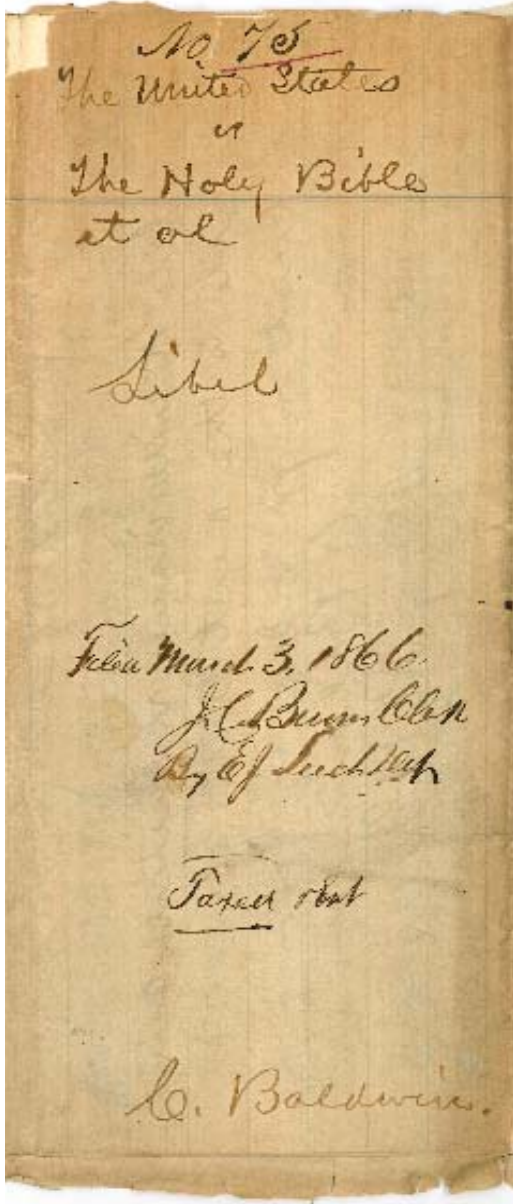 No. 75
The United States
vs
The Holy Bible
et al
Libel
Filed March 3, 1866.
Clerk
By E J
Taxed
C. Baldwin.